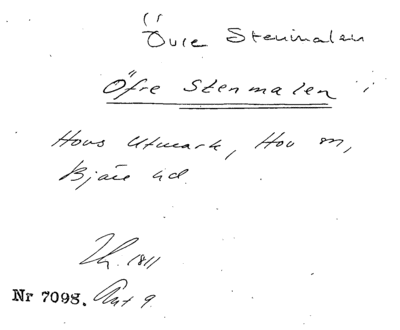 Övre Stenmalen
Öfre Stenmalen
Hovs Utmark, Hov sn,
Bjäre hd.
1811
Nr 7098. Akt 9